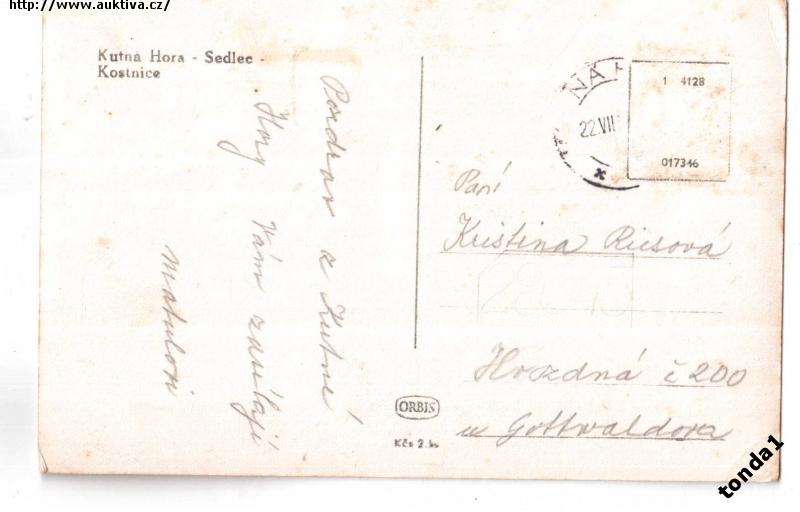 http://www.auktiva.cz/
Kutná Hora - Sedlec -
Kostnice
Pozdrav z Kutné
Hory Vám zasílají
Matulovi
NÁ H
22.VII
1 4128
017346
Paní
Kristina Riesová
Hvozdná č 200
u Gottwaldova
ORBIS
Kčs 2.
tonda1